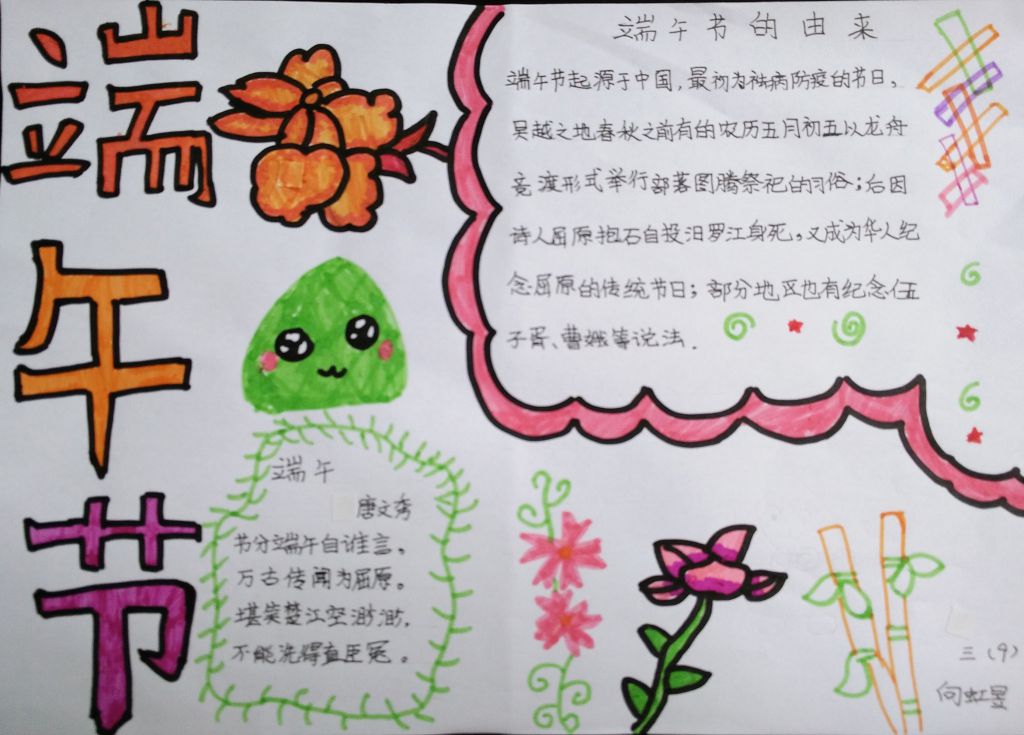 端午节
端午节的由来
端午节起源于中国，最初为祛病防疫的节日，
吴越之地春秋之前有的农历五月初五以龙舟
竞渡形式举行部落图腾祭祀的习俗；后因
诗人屈原抱石自投汨罗江身死，又成为华人纪
念屈原的传统节日；部分地区也有纪念伍
子胥、曹娥等说法．
端午
唐文秀
节分端午自谁言，
万古传闻为屈原。
堪笑楚江空渺渺，
不能洗得直臣冤。
三（9）
向虹昱